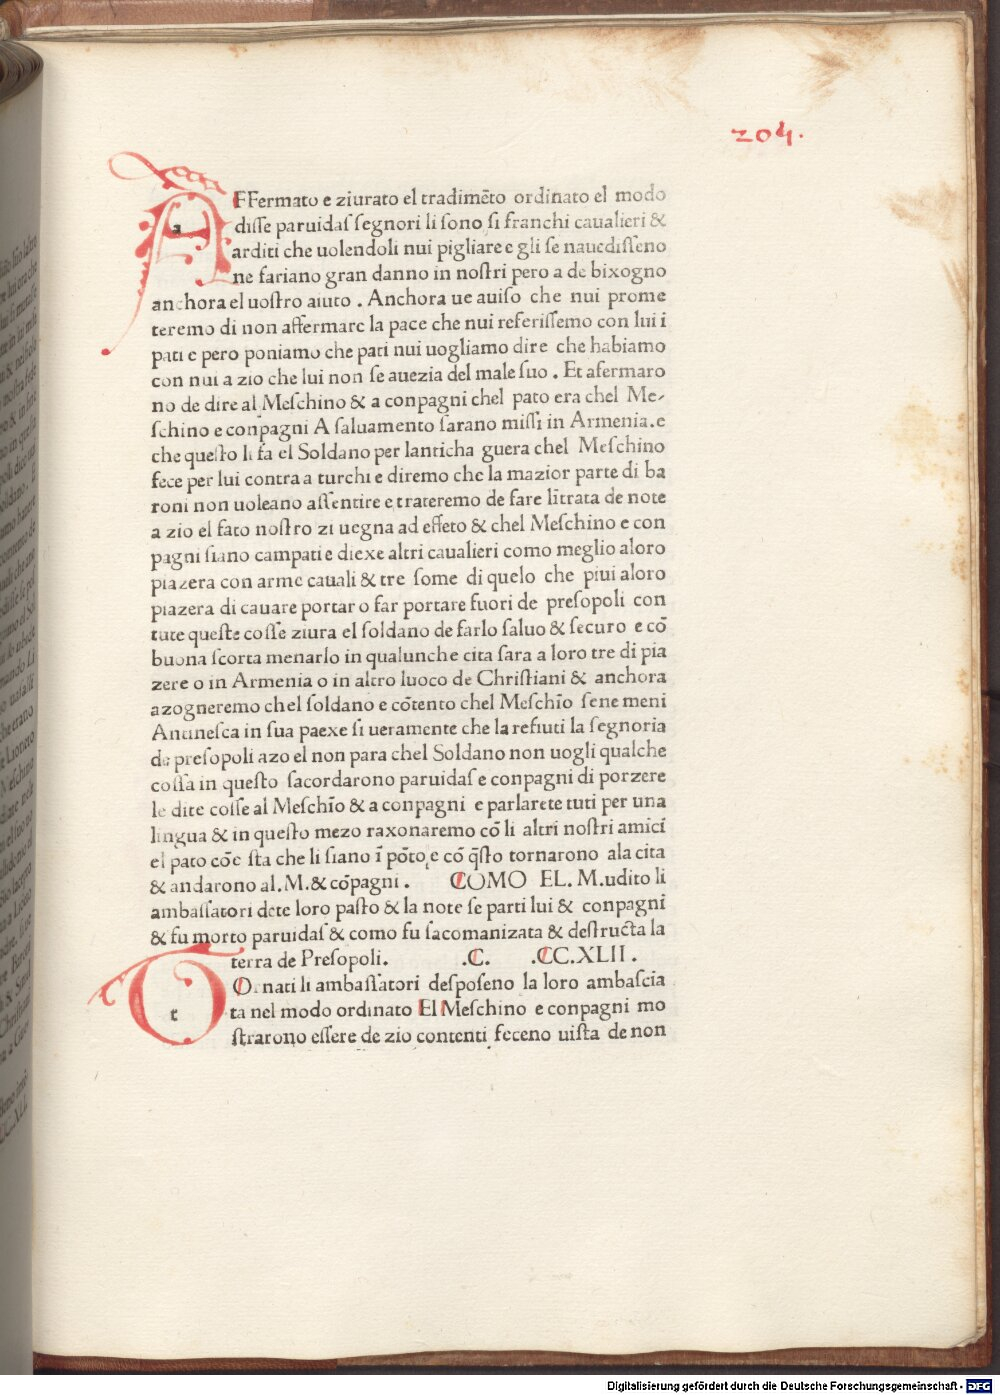 204.
AFFermato e ziurato el tradimēto ordinato el modo
disse paruidas segnori li sono si franchi caualieri &
arditi che uolendoli nui pigliare e gli se nauedisseno
ne fariano gran danno in nostri pero a de bixogno
anchora el uostro aiuto . Anchora ue auiso che nui prome
teremo di non affermare la pace che nui referissemo con lui i
pati e pero poniamo che pati nui uogliamo dire che habiamo
con nui a zio che lui non se auezia del male suo . Et afermaro
no de dire al Meschino & a conpagni chel pato era chel Me-
schino e conpagni A saluamento sarano missi in Armenia.e
che questo li fa el Soldano per lanticha guera chel Meschino
fece per lui contra a turchi e diremo che la mazior parte di ba
roni non uoleano assentire e trateremo de fare lītrata de note
a zio el fato nostro zi uegna ad effeto & chel Meschino e con
pagni siano campati e diexe altri caualieri como meglio aloro
piazera con arme cauali & tre some di quelo che piui aloro
piazera di cauare portar o far portare fuori de presopoli con
tute queste cosse ziura el soldano de farlo saluo & securo e cō
buona scorta menarlo in qualunche cita sara a loro tre di pia
zere o in Armenia o in altro luoco de Christiani & anchora
azogneremo chel soldano e cōtento chel Meschīo sene meni
Antinesca in sua paexe si ueramente che la refiuti la segnoria
de presopoli azo el non para chel Soldano non uogli qualche
cossa in questo sacordarono paruidas e conpagni di porzere
le dite cosse al Meschīo & a conpagni e parlarete tuti per una
lingua & in questo mezo raxonaremo cō li altri nostri amici
el pato cōe sta che li siano ī pōto e cō q̄sto tornarono ala cita
& andarono al. M. & cōpagni . COMO EL. M.udito li
ambassatori dete loro pasto & la note se parti lui & conpagni
& fu morto paruidas & como fu sacomanizata & destructa la
terra de Presopoli. .C. .CC.XLII .
TOrnati li ambassatori desposeno la loro ambascia
ta nel modo ordinato El Meschino e conpagni mo
strarono essere de zio contenti feceno uista de non
Digitalisierung gefördert durch die Deutsche Forschungsgemeinschaft - DFG